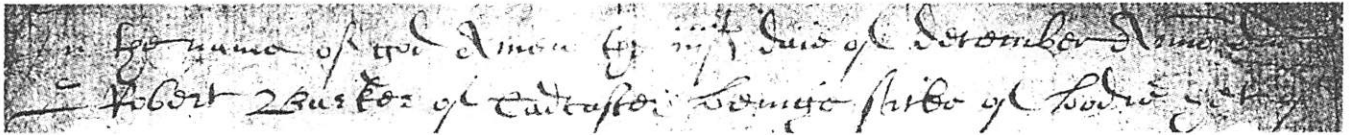 In the name of god Amen the iiijth daie of december Anno dm
I Robert Barker of Tadcaster beinge sicke of bodie yet